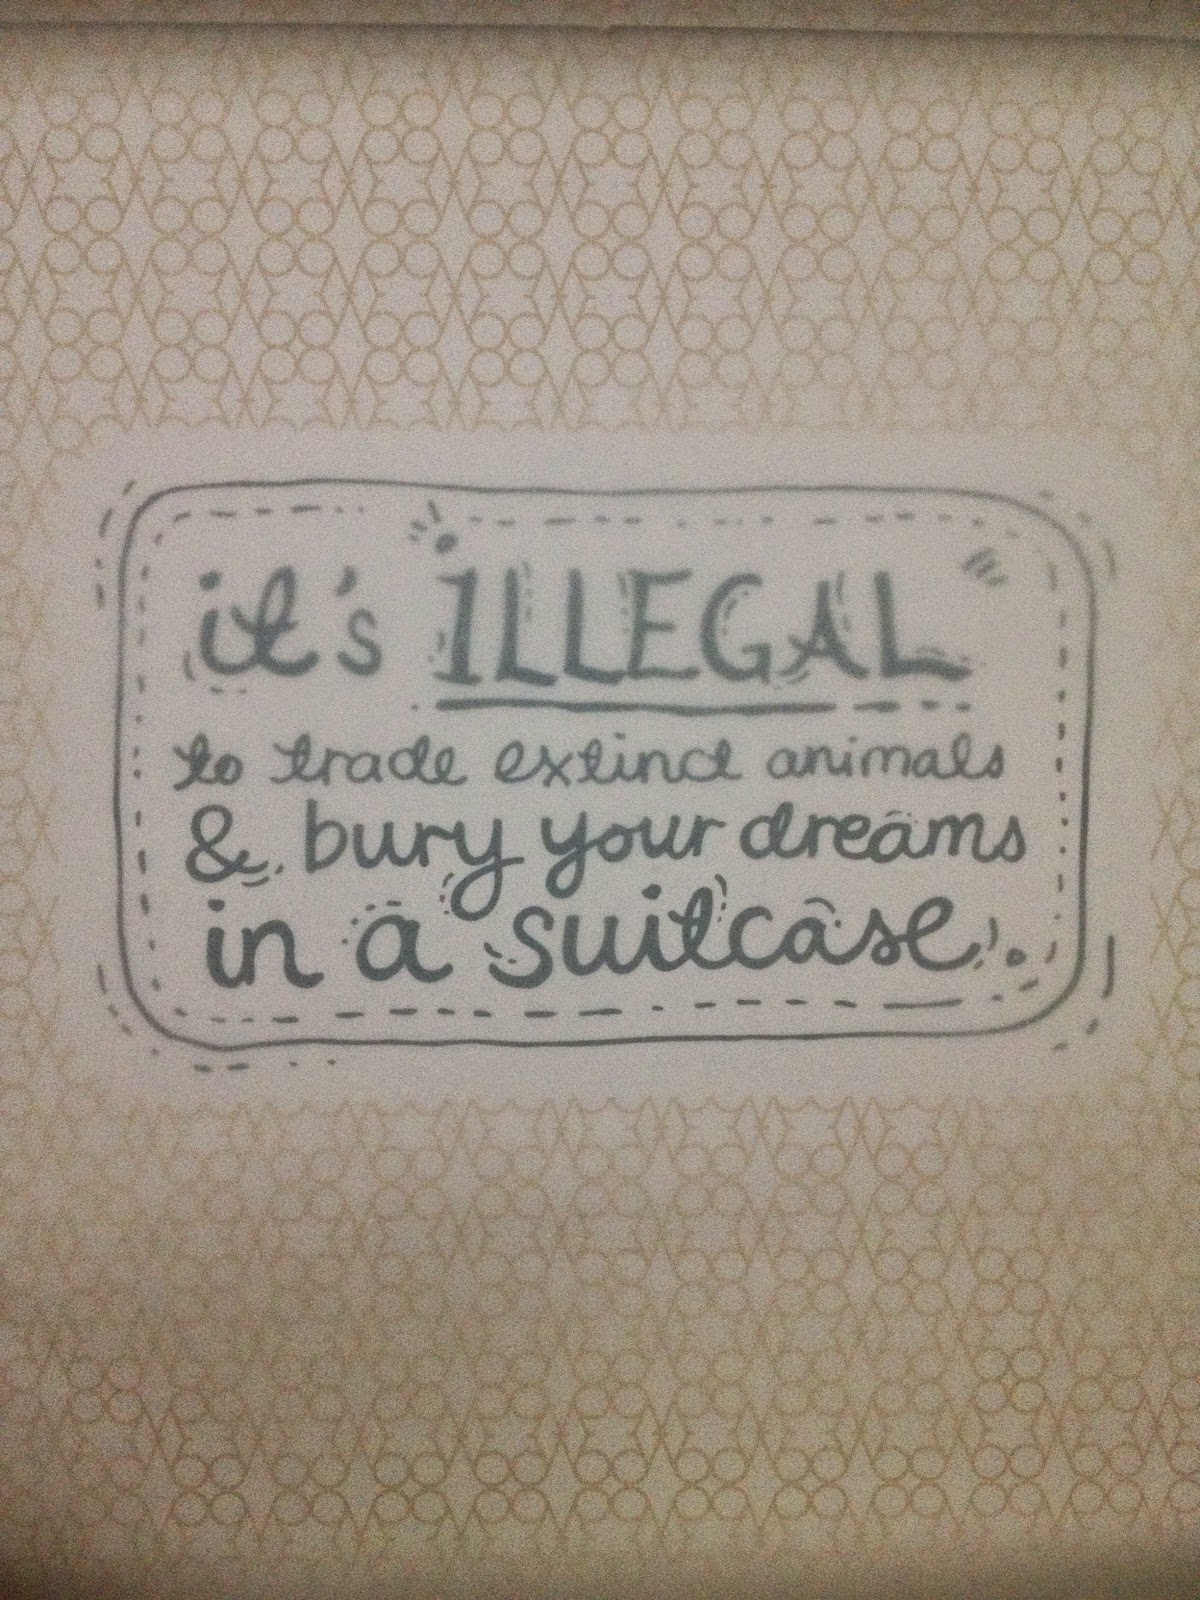 it's ILLEGAL
to trade extinct animals
& bury your dreams
in a suitcase.